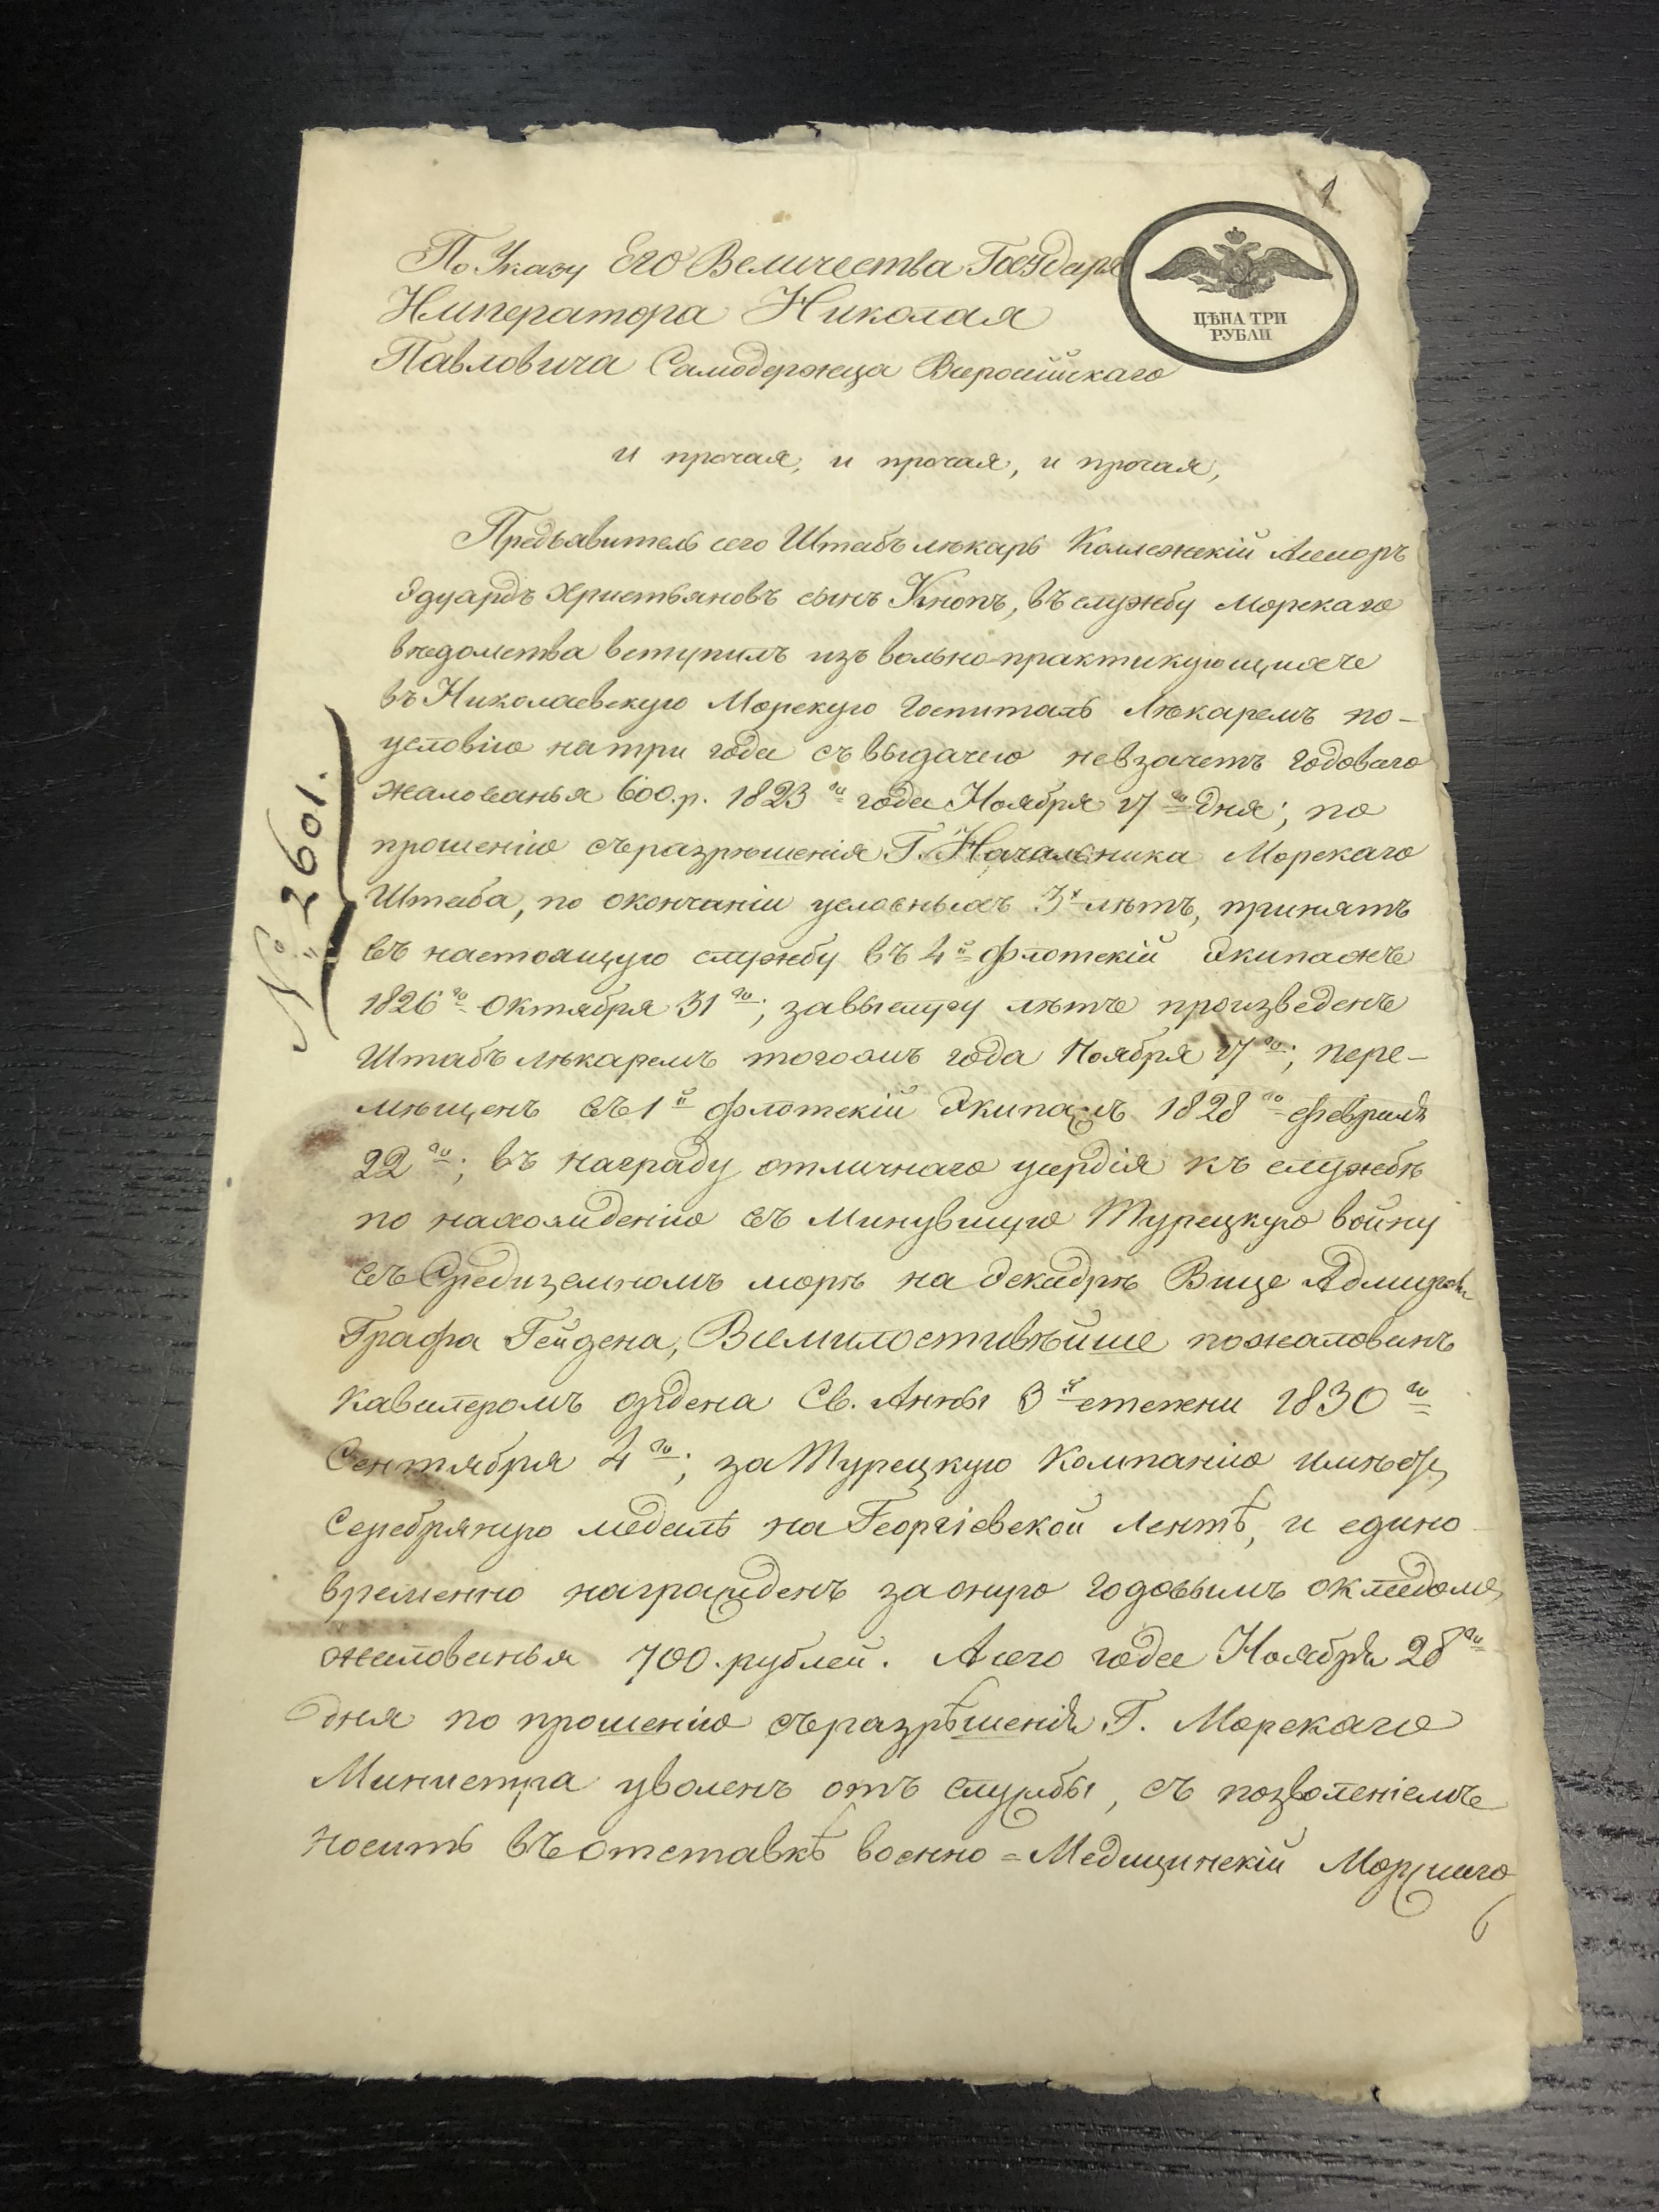 1
По Указу Его Величества Государя
Императора Николая
Павловича Самодержца Всероссійскаго
ЦѢНА ТРИ
РУБЛИ
и прочая, и прочая, и прочая,
Предъявитель сего Штабъ лѣкарь Коллежскій Ассесоръ
Эдуардъ Христьяновъ сынъ Кнопъ, въ службу Морскаго
вѣдомства вступилъ изъ вольно-практикующихъ
въ Николаевскую Морскую Госпиталь Лѣкаремъ по-
условію на три года съ выдачею невзачетъ годоваго
жалованья 600.р. 1823го года Ноября 17го дня; по
прошенію съ разрѣшенія Г. Начальника Морскаго
Штаба, по окончаніи условныхъ 3х лѣтъ, принятъ
въ настоящую службу въ 4й флотскій Экипажъ
1826го Октября 31го; за выслугу лѣтъ произведенъ
Штабъ лѣкаремъ тогожъ года Ноября 17го; пере-
мѣщенъ въ 1й флотскій Экипажъ 1828го Февраля
22го; въ награду отличнаго усердія къ службѣ
по нахожденію въ минувшую Турецкую войну
въ Средиземномъ морѣ на эскадрѣ Вице Адмирала
Графа Гейдена, Всемилостивѣйше пожалованъ
Кавалеромъ ордена Св. Анны 3й степени 1830го
Сентября 4го; за Турецкую Компанію имѣетъ
Серебряную медаль на Георгіевской лентѣ, и едино
временно награжденъ за оную годовымъ окладомъ
жалованья 700. рублей. А сего года Ноября 28го
дня по прошенію съ разрѣшенія Г. Морскаго
Министра уволенъ отъ службы, съ позволеніемъ
носить въ отставкѣ военно=Медицинскій
№ 2601.